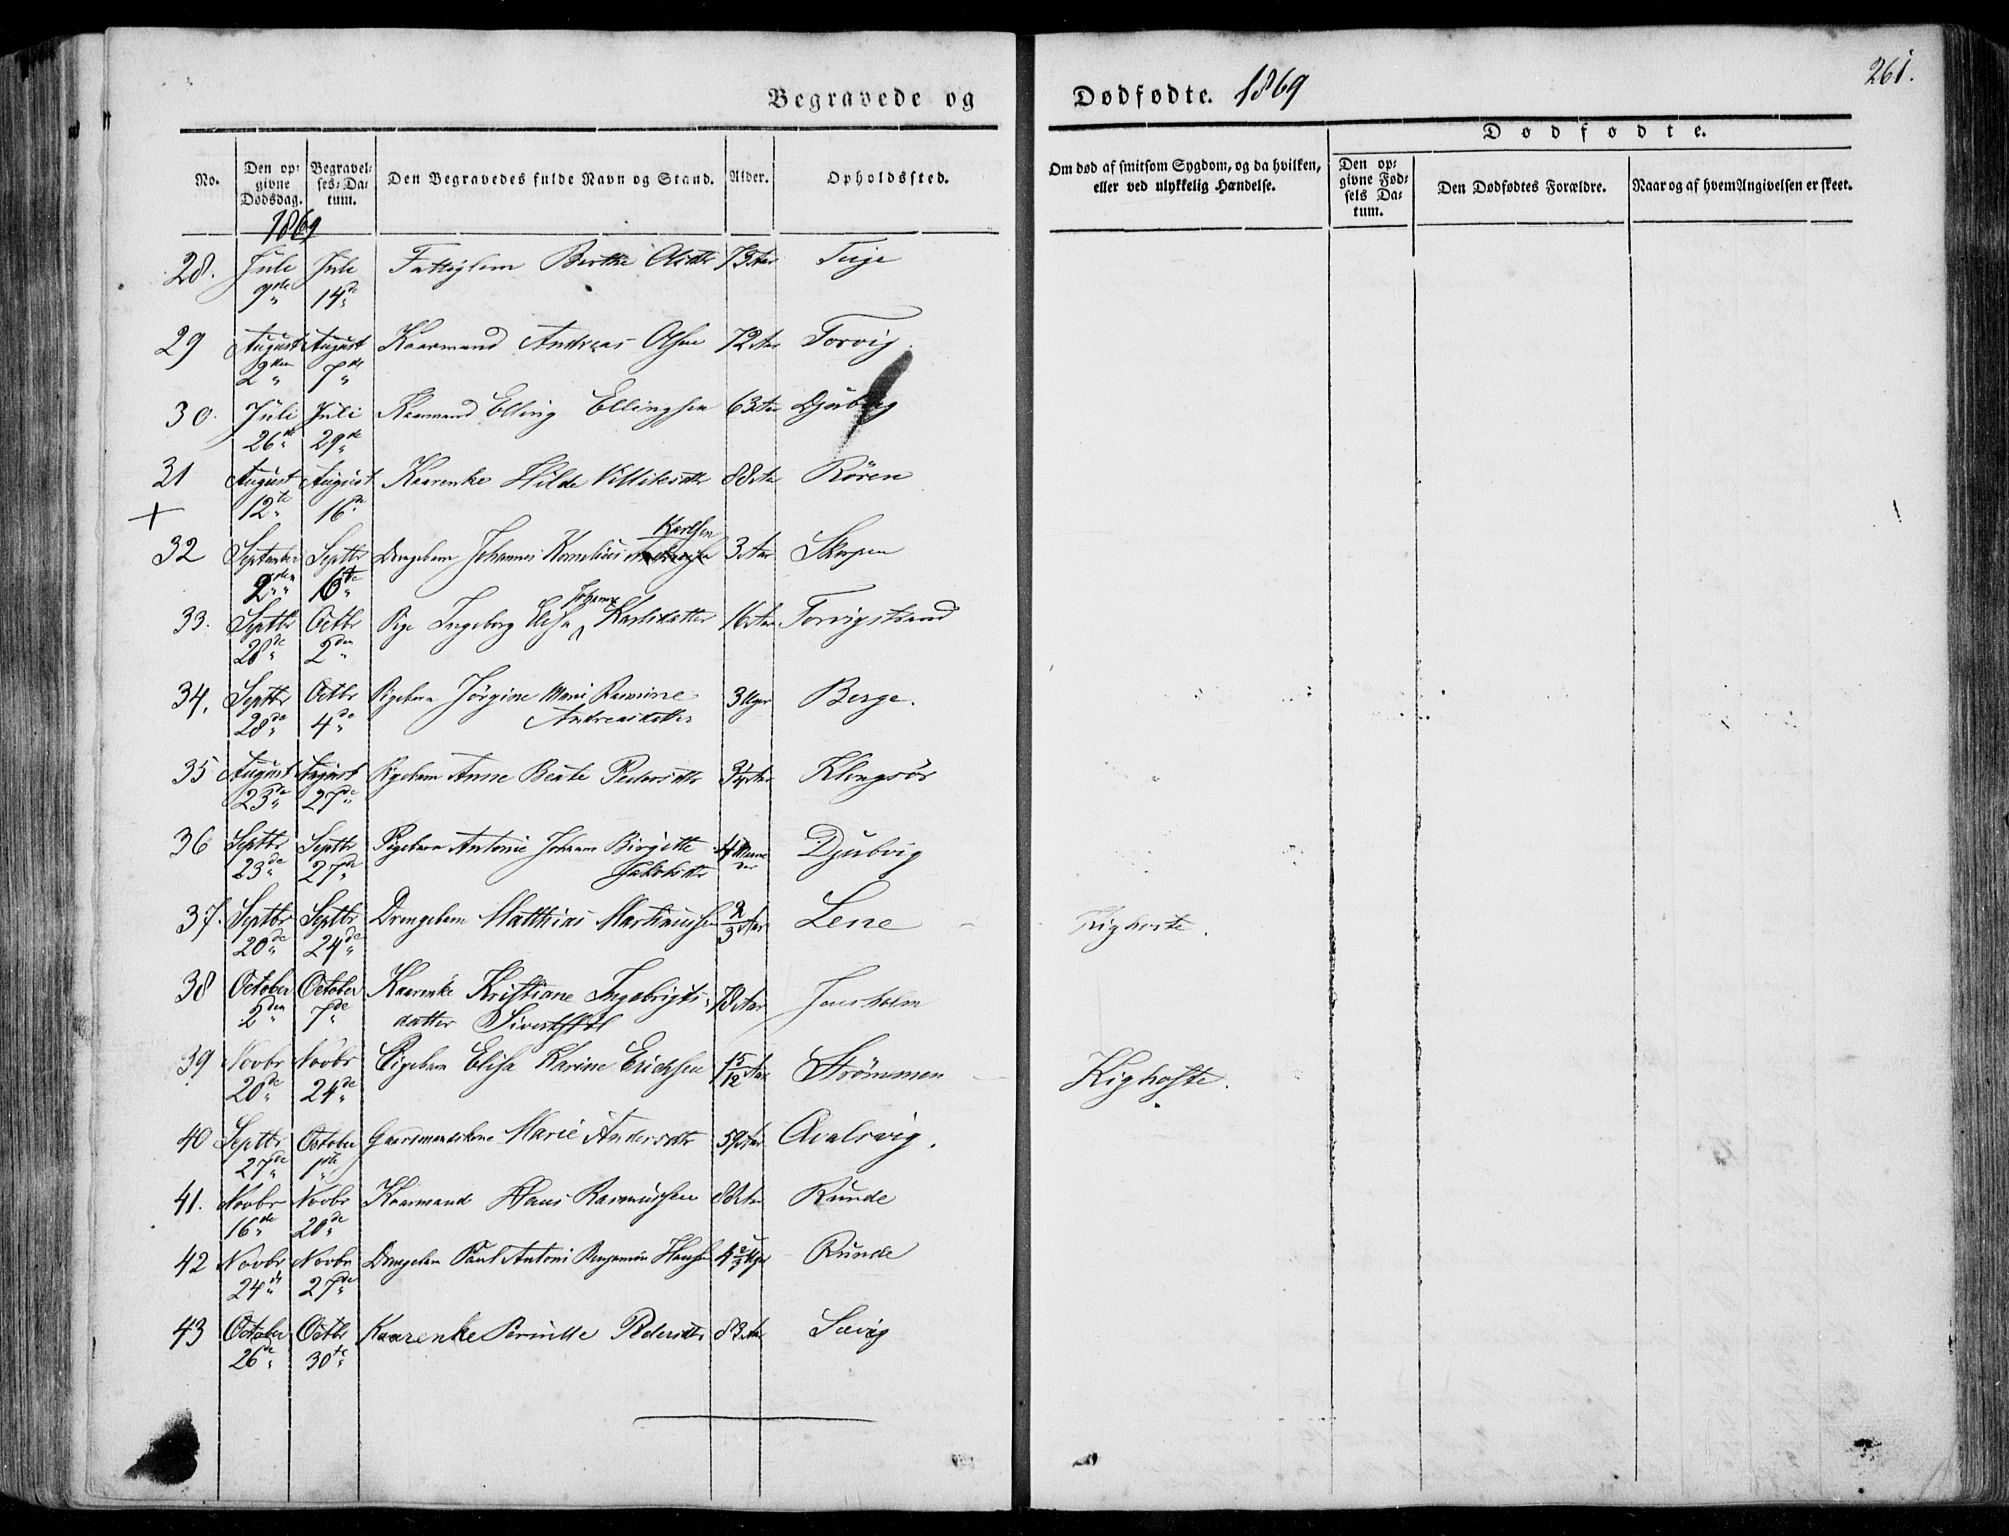 Begravede og
Dødfødte. 1869
261.
No.
Den opgivne Dødsdag.
Begravelses-Datum.
Den Begravedes fulde Navn og Stand.
Alder.
Opholdssted.
Om død af smitsom Sygdom, og da hvilken, eller ved ulykkelig Hændelse.
Dødfødte.
Den opgivne Fødsels Datum.
Den Dødfødtes Forældre.
Naar og af hvem Angivelsen er skeet.
1869
28. Juli 9de Juli 14de Fattiglem Berthe Olsdtr 73 Aar Teige
29 August 2den August 7de Kaarmand Andreas Olsen 72 Aar Torvig
30. Juli 26de Juli 29de Kaarmand Elling Ellingsen 63 Aar
31 August 12te August 16de Kaarenke Hilde Villiksdtr 88 Aar Røren
+
32 September 2den Septbr 6te Drengebarn Johannes Kornelius Karlsen 3 Aar Skorpen
33. Septbr 28de Octbr 2den Pige Ingeborg Elisa Johanne Karlsdatter 16 Aar Torvigstrand
34. Septbr 28de Octbr 4de Pigebarn Jörgine Marie Rasmine Andreasdatter 3 Uger Berge.
35 August 23de August 27de Pigebarn Anne Beate Pedersdtr 3/4 Aar
36 Septbr 23de Septbr 27de Pigebarn Antonie Johanne Birgitte Jakobsdtr 4 Maaneder Djubvig
37. Septbr 20de Septbr 24de Drengebarn Matthias Martinussen 2/3 Aar Lene Kighoste.
38 October 2den October 7de Kaarenke Kristiane Ingebrigtsdatter 78 Aar Jensholm
39 Novbr 20de Novbr 24de Pigebarn Elisa Karine Erichsen 15/12 Aar Strömmen Kighoste.
40 Septbr 27de October 1ste Gaardmandskone Marie Andersdtr 59 Aar
41. Novbr 16de Novbr 20de Kaarmand Hans Rasmussen Aar Runde
42 Novbr 24de Novbr 27de Drengebarn Paul Antoni Benjamin Hansen Uger Runde
43 October 26de Octbr 30te Kaarenke Pernille Pedersdtr 83 Aar Sævig